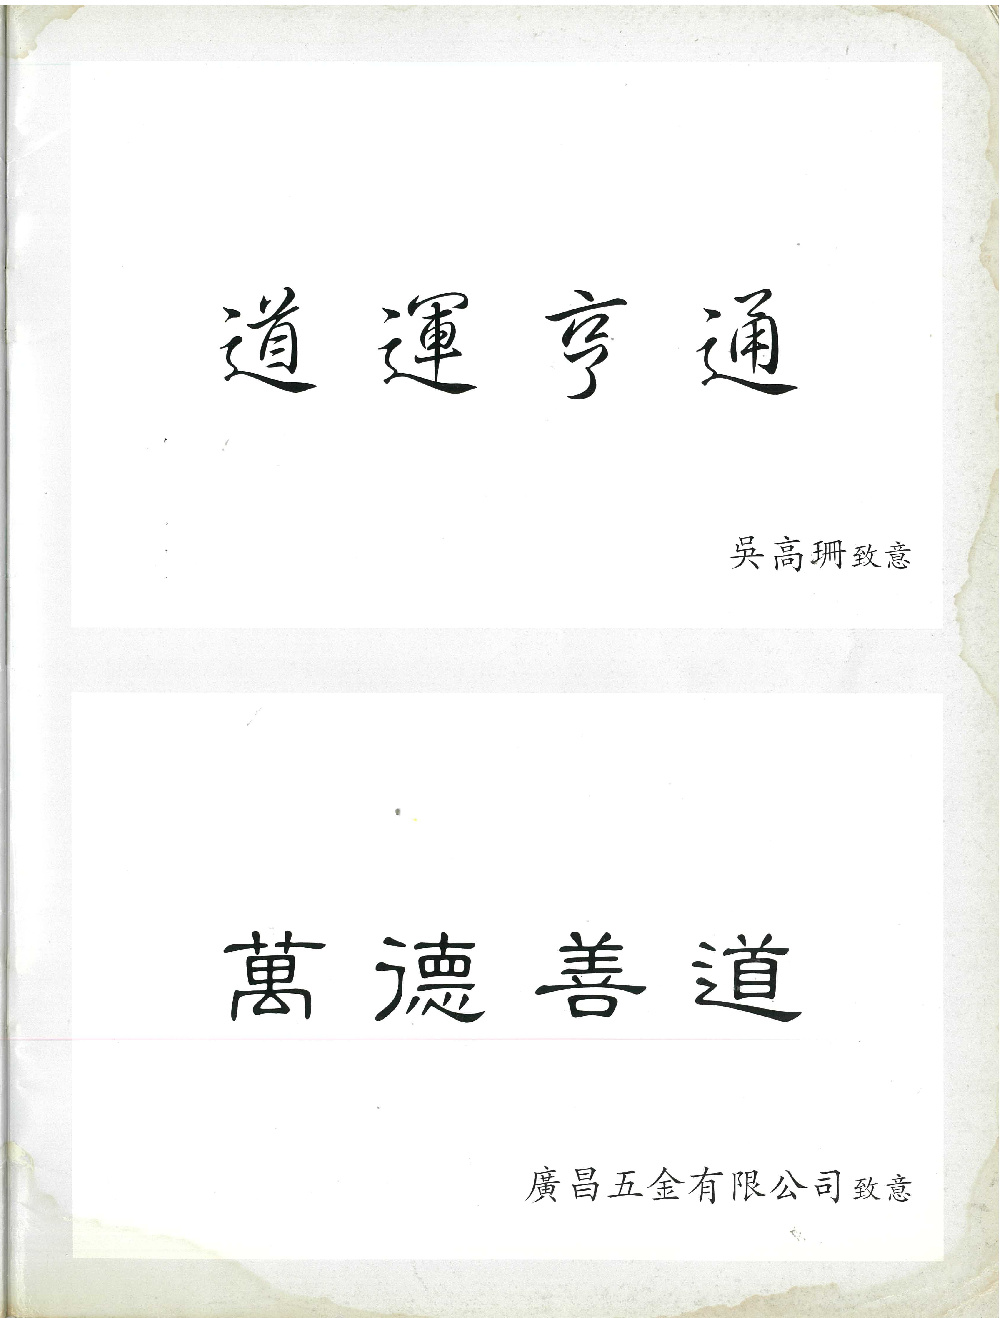 道運亨通
吳高珊致意
萬德善道
廣昌五金有限公司致意